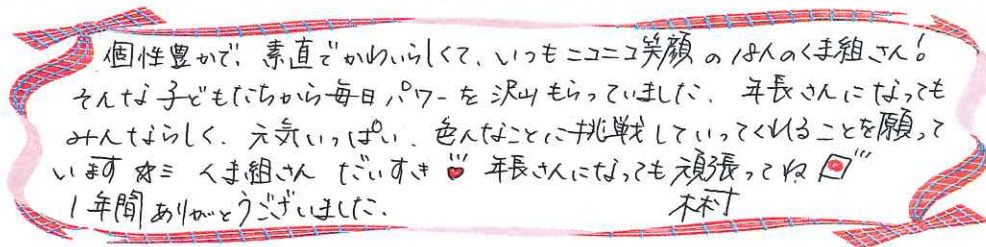 個性豊かで、素直でかわいらしくて、いつもニコニコ笑顔の18人のくま組さん!
そんな子どもたちから毎日パワーを沢山もらっていました。年長さんになっても
みんならしく、元気いっぱい、色んなことに挑戦していってくれることを願って
います☆ミ くま組さん だいすき♥ 年長さんになっても頑張ってね
1年間ありがとうございました。 木村